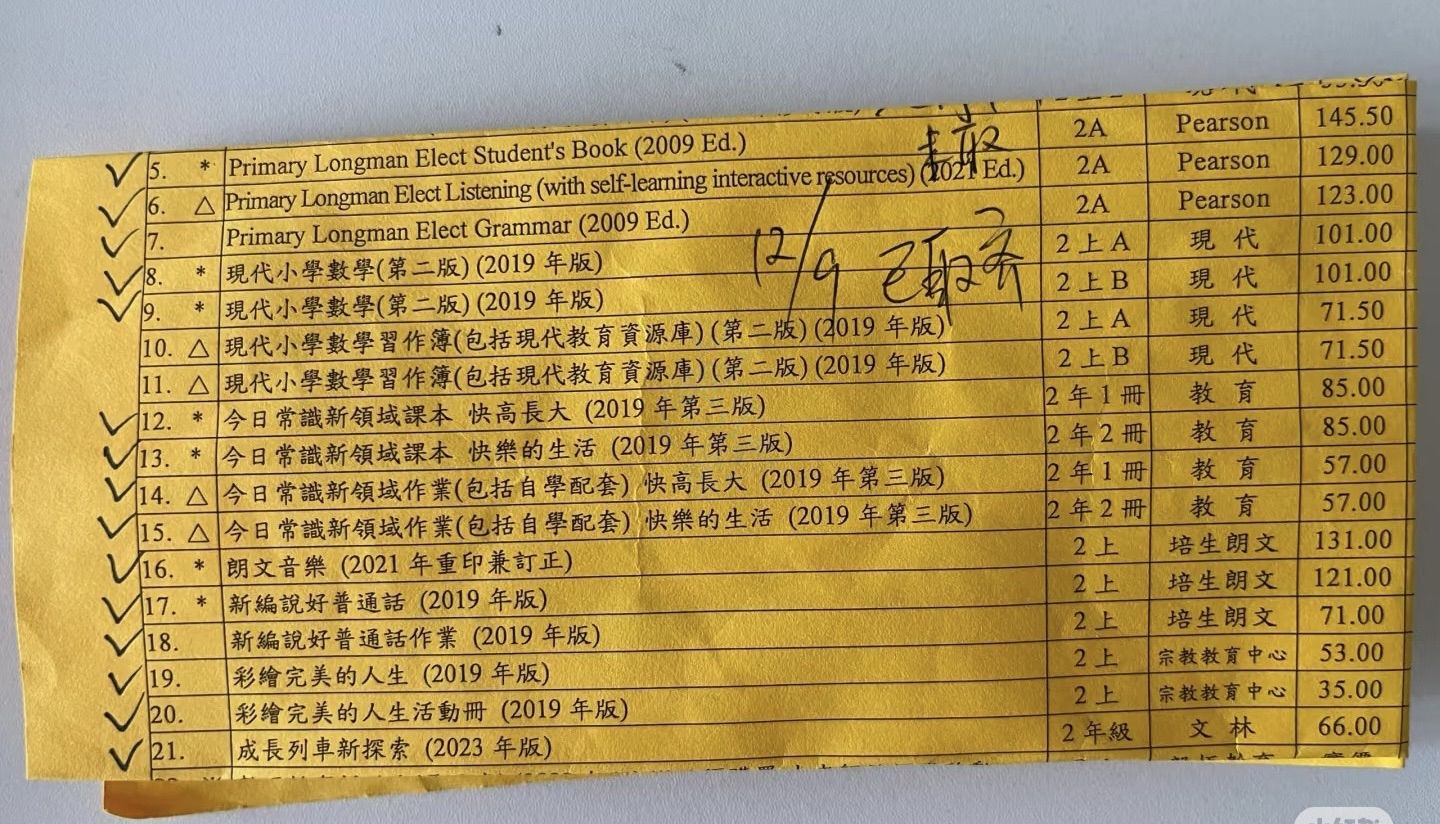 5. * Primary Longman Elect Student's Book (2009 Ed.) 2A Pearson 145.50
6. △ Primary Longman Elect Listening (with self-learning interactive resources) (2021 Ed.) 2A Pearson 129.00
7. Primary Longman Elect Grammar (2009 Ed.) 2A Pearson 123.00
8. * 現代小學數學(第二版) (2019 年版) 2 上 A 現 代 101.00
12/9 已取齊
9. * 現代小學數學(第二版) (2019 年版) 2 上 B 現 代 101.00
10. △ 現代小學數學習作簿(包括現代教育資源庫) (第二版) (2019 年版) 2 上 A 現 代 71.50
11. △ 現代小學數學習作簿(包括現代教育資源庫) (第二版) (2019 年版) 2 上 B 現 代 71.50
12. * 今日常識新領域課本 快高長大 (2019 年第三版) 2 年 1 冊 教 育 85.00
13. * 今日常識新領域課本 快樂的生活 (2019 年第三版) 2 年 2 冊 教 育 85.00
14. △ 今日常識新領域作業(包括自學配套) 快高長大 (2019 年第三版) 2 年 1 冊 教 育 57.00
15. △ 今日常識新領域作業(包括自學配套) 快樂的生活 (2019 年第三版) 2 年 2 冊 教 育 57.00
16. * 朗文音樂 (2021 年重印兼訂正) 2 上 培生朗文 131.00
17. * 新編說好普通話 (2019 年版) 2 上 培生朗文 121.00
18. 新編說好普通話作業 (2019 年版) 2 上 培生朗文 71.00
19. 彩繪完美的人生 (2019 年版) 2 上 宗教教育中心 53.00
20. 彩繪完美的人生活動冊 (2019 年版) 2 上 宗教教育中心 35.00
21. 成長列車新探索 (2023 年版) 2 年級 文 林 66.00